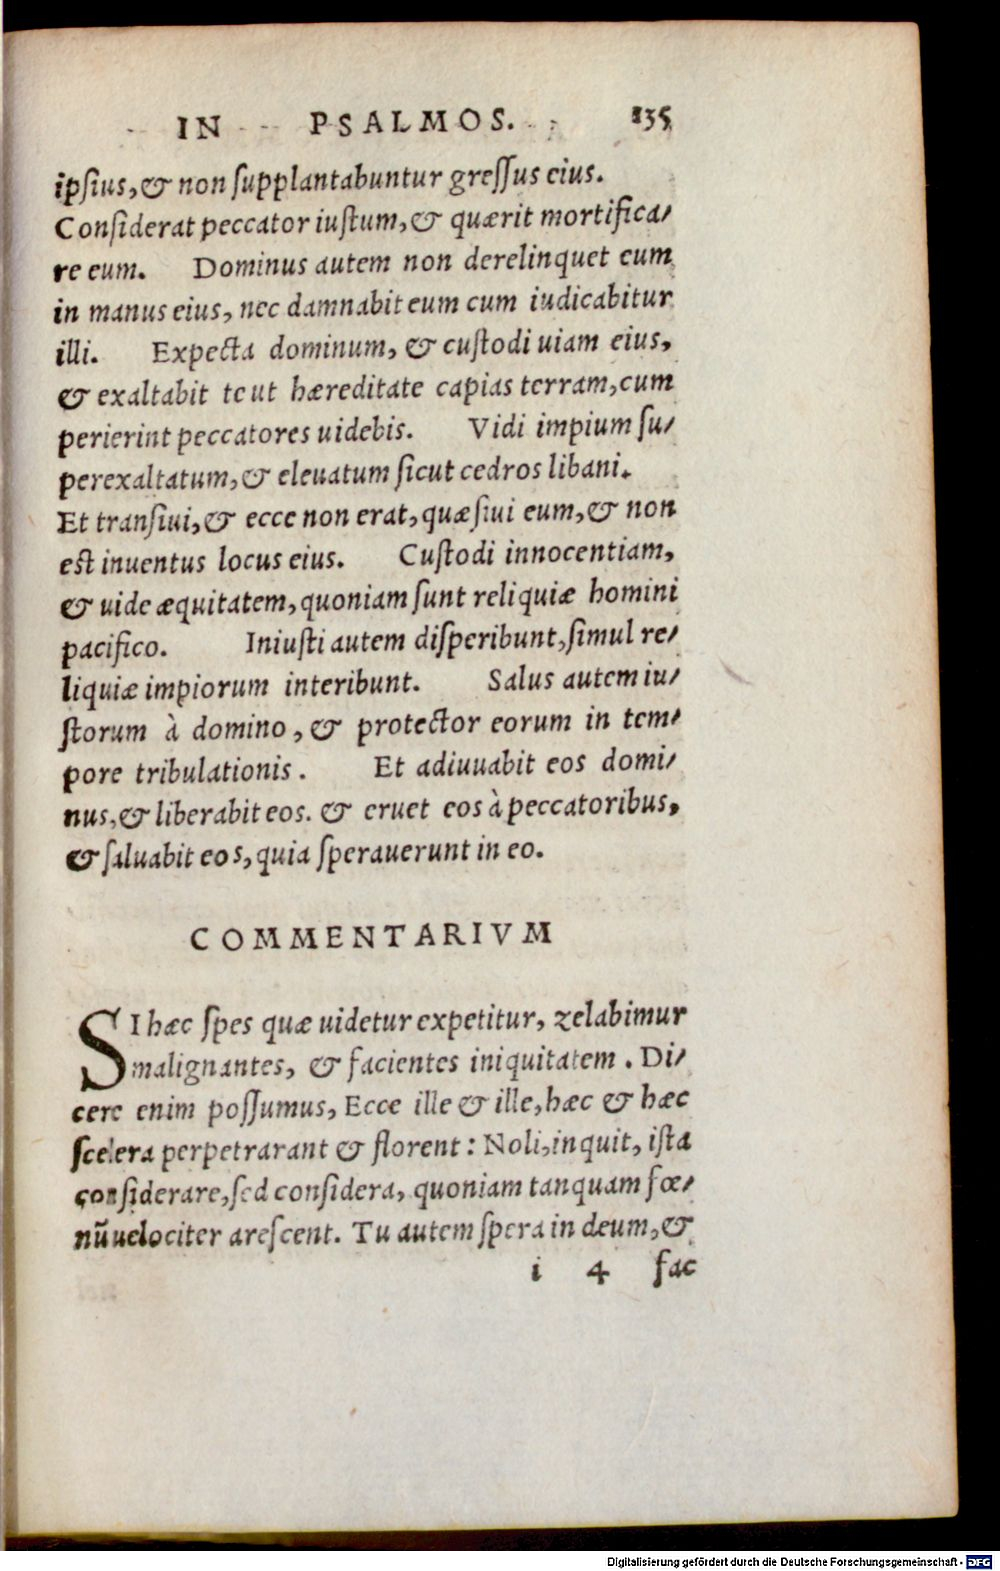 IN PSALMOS. 135
ipsius, & non supplantabuntur gressus eius.
Considerat peccator iustum, & quærit mortifica/
re eum. Dominus autem non derelinquet eum
in manus eius, nec damnabit eum cum iudicabitur
illi. Expecta dominum, & custodi uiam eius,
& exaltabit te ut hæreditate capias terram, cum
perierint peccatores uidebis. Vidi impium su/
perexaltatum, & eleuatum sicut cedros libani.
Et transiui, & ecce non erat, quæsiui eum, & non
est inuentus locus eius. Custodi innocentiam,
& uide æquitatem, quoniam sunt reliquiæ homini
pacifico. Iniusti autem disperibunt, simul re/
liquiæ impiorum interibunt. Salus autem iu/
storum à domino, & protector eorum in tem/
pore tribulationis. Et adiuuabit eos domi/
nus, & liberabit eos. & eruet eos à peccatoribus,
& saluabit eos, quia sperauerunt in eo.
COMMENTARIVM
SI hæc spes quæ uidetur expetitur, zelabimur
malignantes, & facientes iniquitatem. Di/
cere enim possumus, Ecce ille & ille, hæc & hæc
scelera perpetrarant & florent: Noli, inquit, ista
considerare, sed considera, quoniam tanquam fœ/
nũ uelociter arescent. Tu autem spera in deum, &
i 4 fac
Digitalisierung gefördert durch die Deutsche Forschungsgemeinschaft - DFG